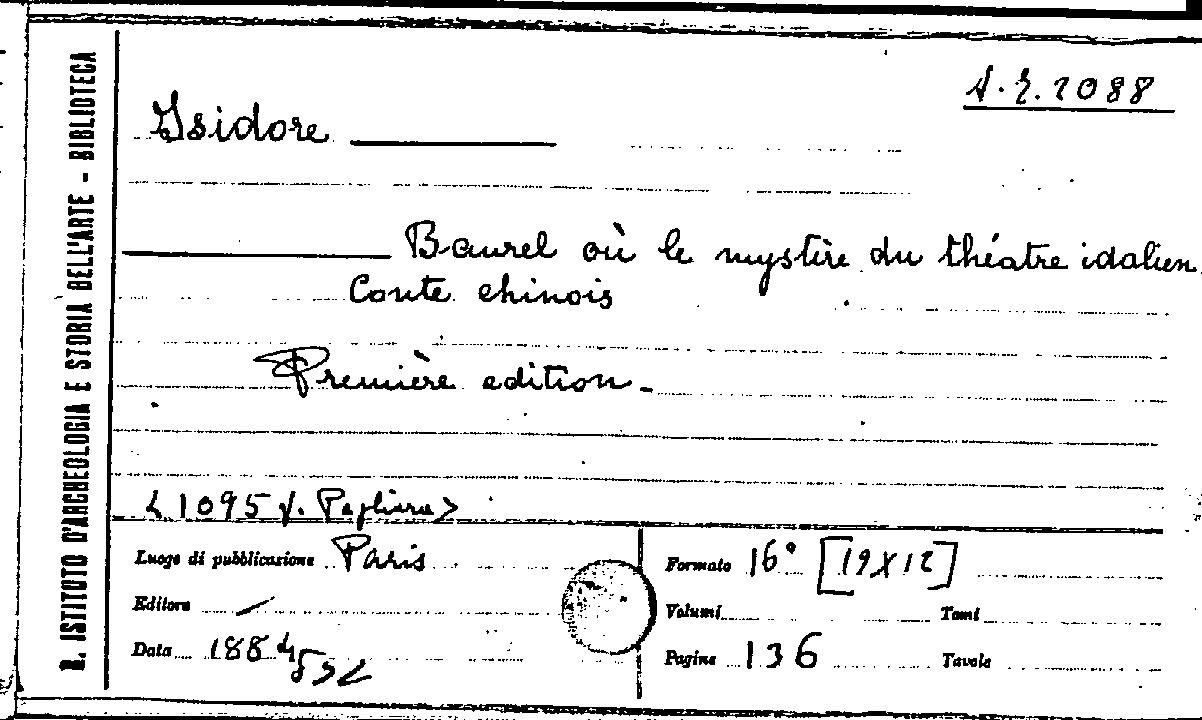 R. ISTITUTO D'ARCHEOLOGIA E STORIA DELL'ARTE - BIBLIOTECA
Isidore
Baurel où le mystère du théatre idalien
Conte chinois
Première edition -
Luogo di pubblicazione Paris
Editore /
Data 1884
Formato 16° [19X12]
Volumi Tomi
Pagine 136 Tavole